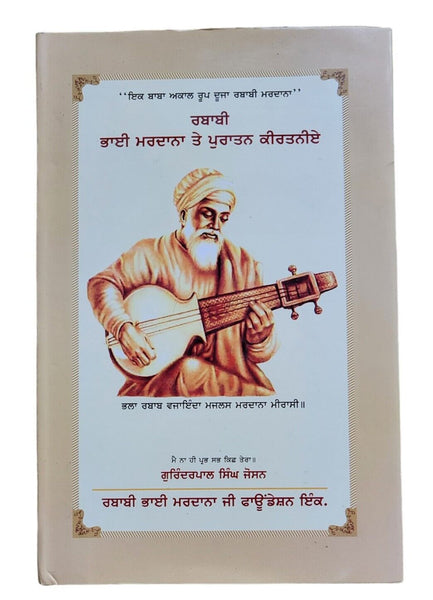 "ਇਕ ਬਾਬਾ ਅਕਾਲ ਰੂਪ ਦੂਜਾ ਰਬਾਬੀ ਮਰਦਾਨਾ"
ਰਬਾਬੀ
ਭਾਈ ਮਰਦਾਨਾ ਤੇ ਪੁਰਾਤਨ ਕੀਰਤਨੀਏ
ਭਲਾ ਰਬਾਬ ਵਜਾਇੰਦਾ ਮਜਲਸ ਮਰਦਾਨਾ ਮੀਰਾਸੀ॥
ਮੈ ਨਾ ਹੀ ਪ੍ਰਭ ਸਭ ਕਿਛ ਤੇਰਾ॥
ਗੁਰਿੰਦਰਪਾਲ ਸਿੰਘ ਜੋਸਨ
ਰਬਾਬੀ ਭਾਈ ਮਰਦਾਨਾ ਜੀ ਫਾਊਂਡੇਸ਼ਨ ਇੰਕ.